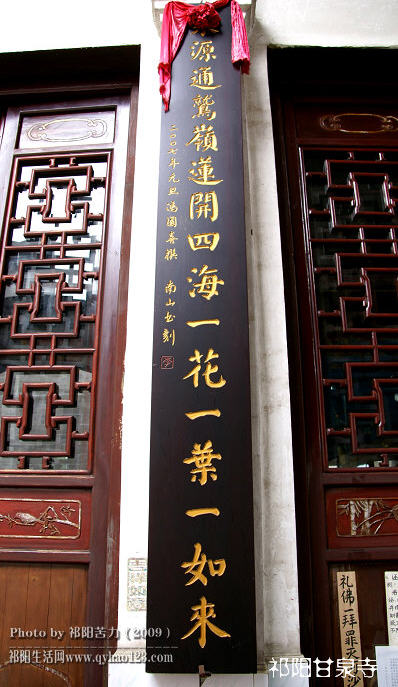 源通鷲嶺蓮開四海一花一葉一如來
二〇〇七年元旦馮國喜撰 南山书刻
礼佛一拜罪灭
沙
Photo by 祁阳苦力（2009）
祁阳生活网www.qyhao123.com
祁阳甘泉寺